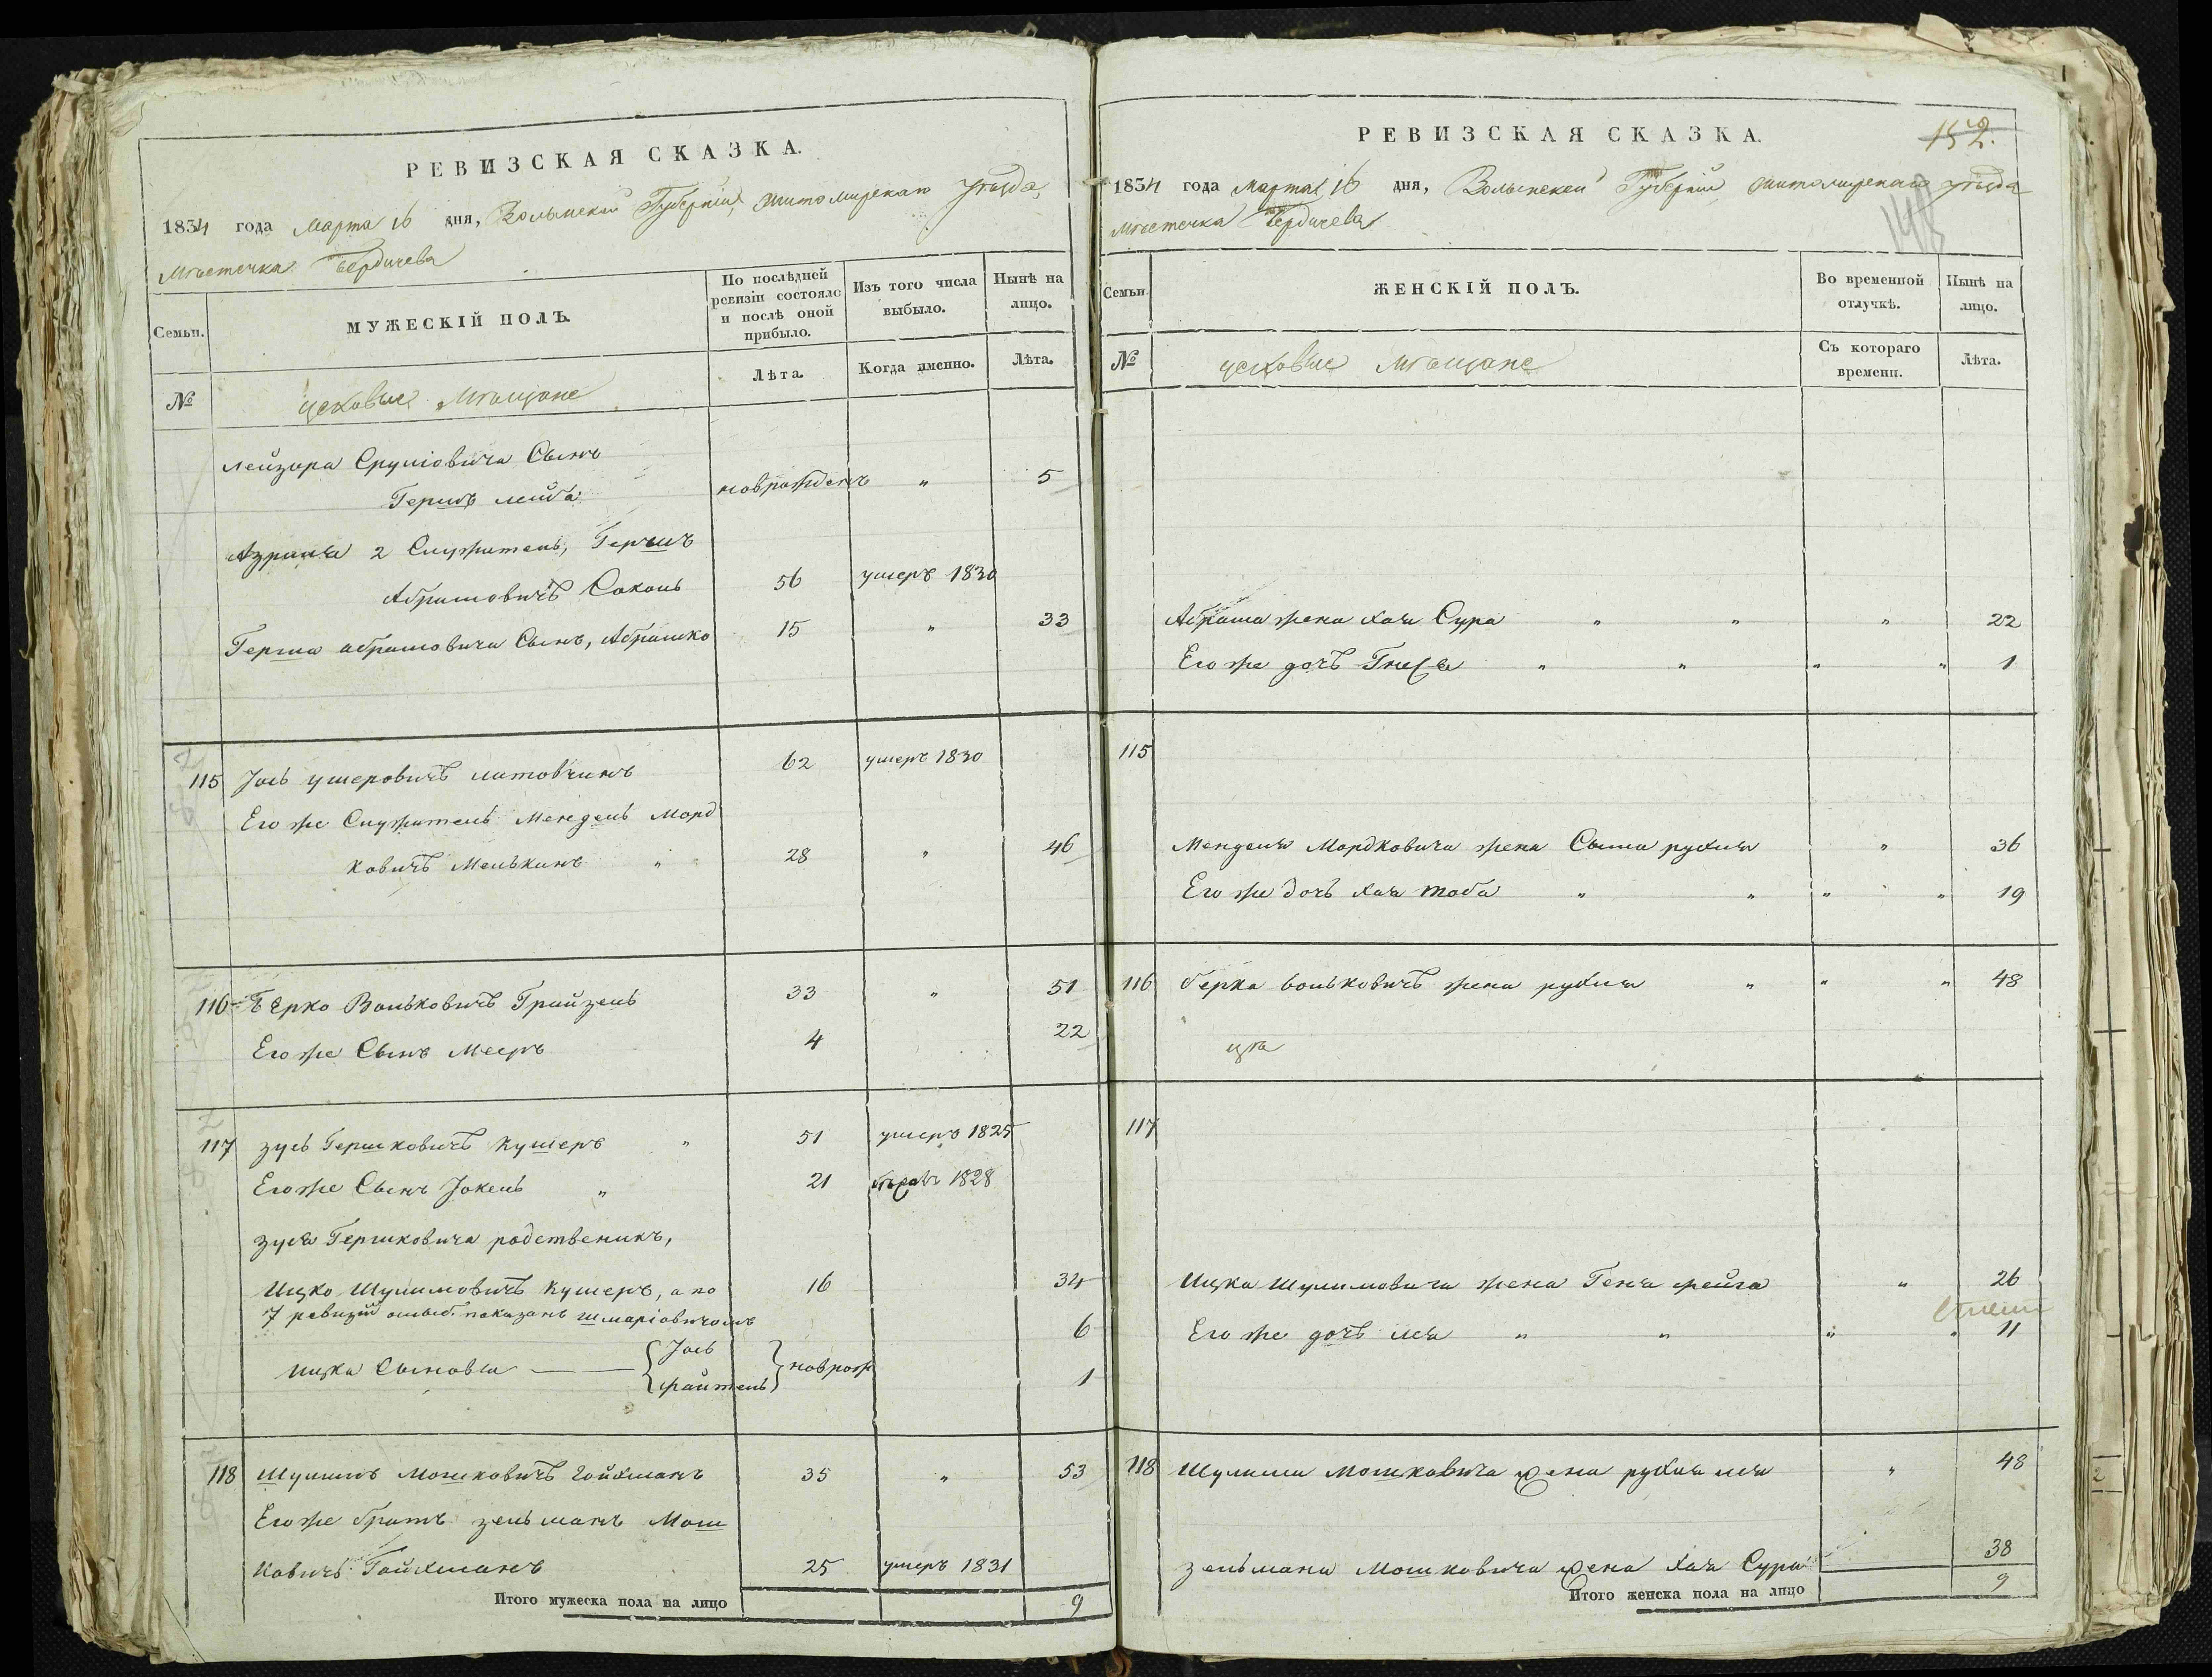 РЕВИЗСКАЯ СКАЗКА.
1834 года Марта 16 дня, Волынской Губерніи, Житомирскаго Уѣзда,
Мѣстечка Бердичева
Семьи.
МУЖЕСКІЙ ПОЛЪ.
По послѣдней ревизіи состояло и послѣ оной прибыло.
Изъ того числа выбыло.
Нынѣ на лицо.
№
цеховые Мѣщане
Лѣта.
Когда именно.
Лѣта.
Лейзора Сруліовича Сынъ
Гершъ лейба новрожденъ " 5
2 Служитель, Гершъ
Абрамовичъ Соколь 56 умеръ 1830
Герша абрамовича Сынъ, Абрамко 15 " 33
115 Іось ушеровичъ литовчинъ 62 умеръ 1830
Его же Служитель Мендель Морд
ковичъ Мелькинъ " 28 " 46
116 Берко Вольковичъ Грайзель 33 " 51
Его же Сынъ Мееръ 4 22
117 зусь Гершковичъ Кушеръ " 51 умеръ 1825
Его же Сынъ Іокель " 21 1828
зуся Гершковича родственикъ,
Ицко Шулимовичъ Кушеръ, а по 16 34
7 ревизій ошыб. показанъ шмаріовичомъ
Ицка Сыновья — { Іось } новрож 6
файтель 1
118 Шулимъ Мошковичъ Гойхманъ 35 " 53
Его же братъ зельманъ Мош
ковичъ Гойхманъ 25 умеръ 1831
Итого мужеска пола на лицо 9
РЕВИЗСКАЯ СКАЗКА.
152.
1834 года Марта 16 дня, Волынской Губерніи Житомирскаго уѣзда
148
Мѣстечка Бердичева
Семьи.
ЖЕНСКІЙ ПОЛЪ.
Во временной отлучкѣ.
Нынѣ на лицо.
№
цеховые Мѣщане
Съ котораго времени.
Лѣта.
Абрама жена хая Сура " " " 22
Его же дочъ Гнеся " " " " 1
115
Менделя Мордковича жена Сыма рухля " 36
Его же дочъ хая тоба " " " " 19
116 берка вольковичъ жена рухля " " " 48
117
Ицка Шулимовича жена Геня фейга " 26
Его же дочъ лея " " " " 11
118 Шулима Мошковича жена рухля лея " 48
зельмана Мошковича жена хая Сура 38
Итого женска пола на лицо 9